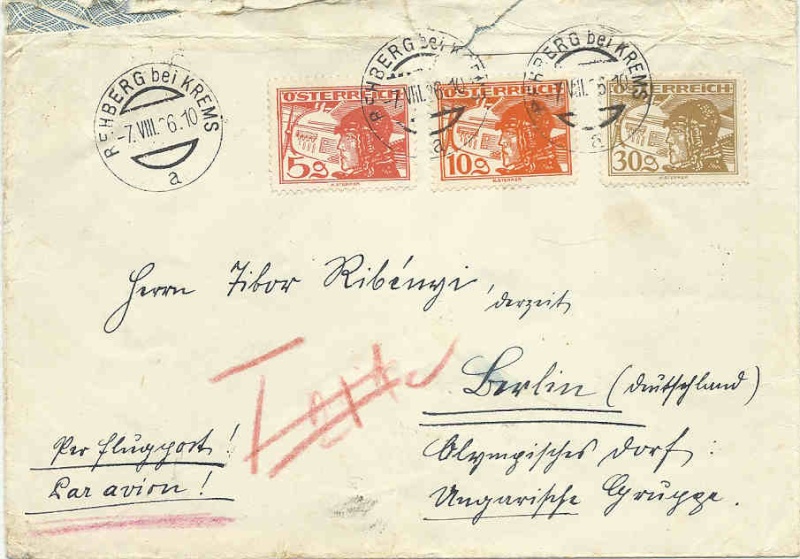 REHBERG bei KREMS
-7.VIII.36.10
a
REHBERG bei KREMS
-7.VIII.36.10
a
REHBERG bei KREMS
-7.VIII.36.10
a
ÖSTERREICH
5g
ÖSTERREICH
10g
ÖSTERREICH
30g
Herrn Tibor Ribényi, derzeit
Berlin (Deutschland)
Per Flugpost!
Olympisches Dorf:
Par avion!
Ungarische Gruppe.